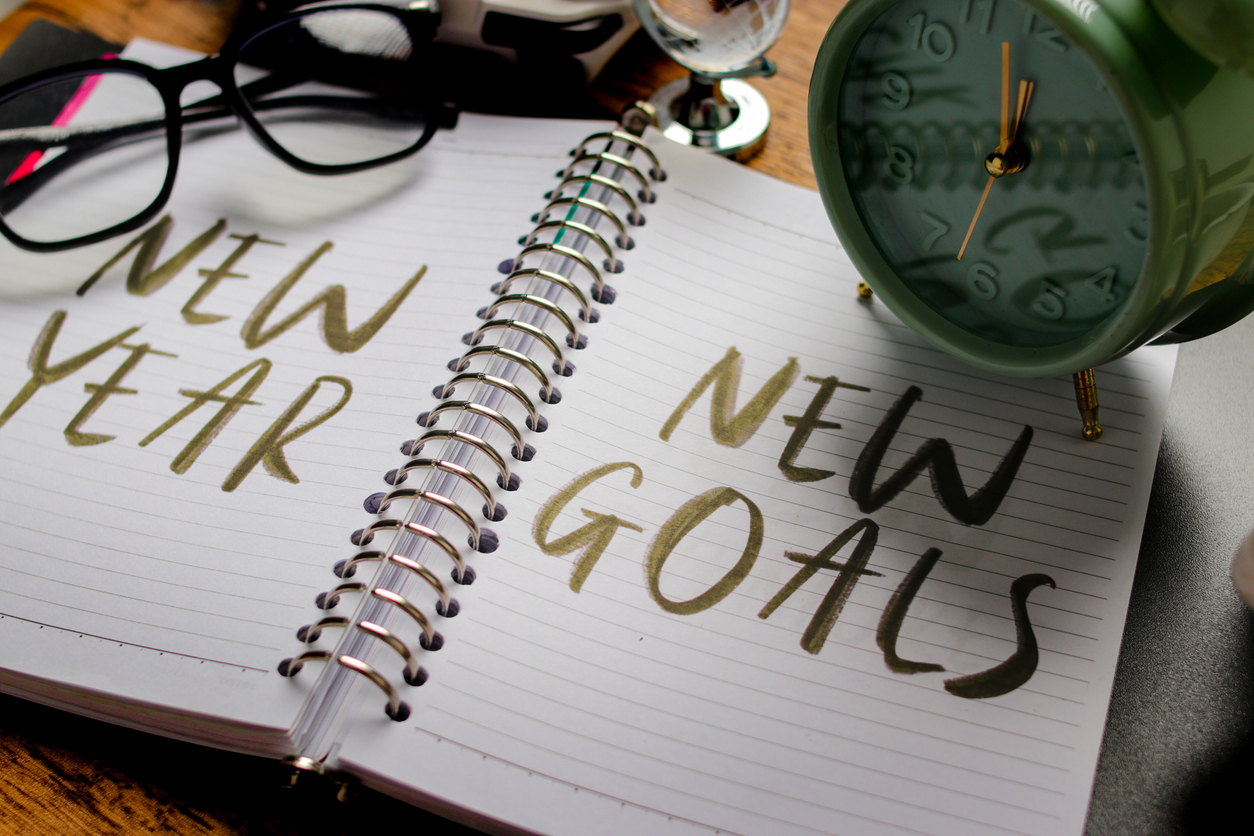 NEW
YEAR
NEW
GOALS
11
12
10
9
8
7
6
5
4
3